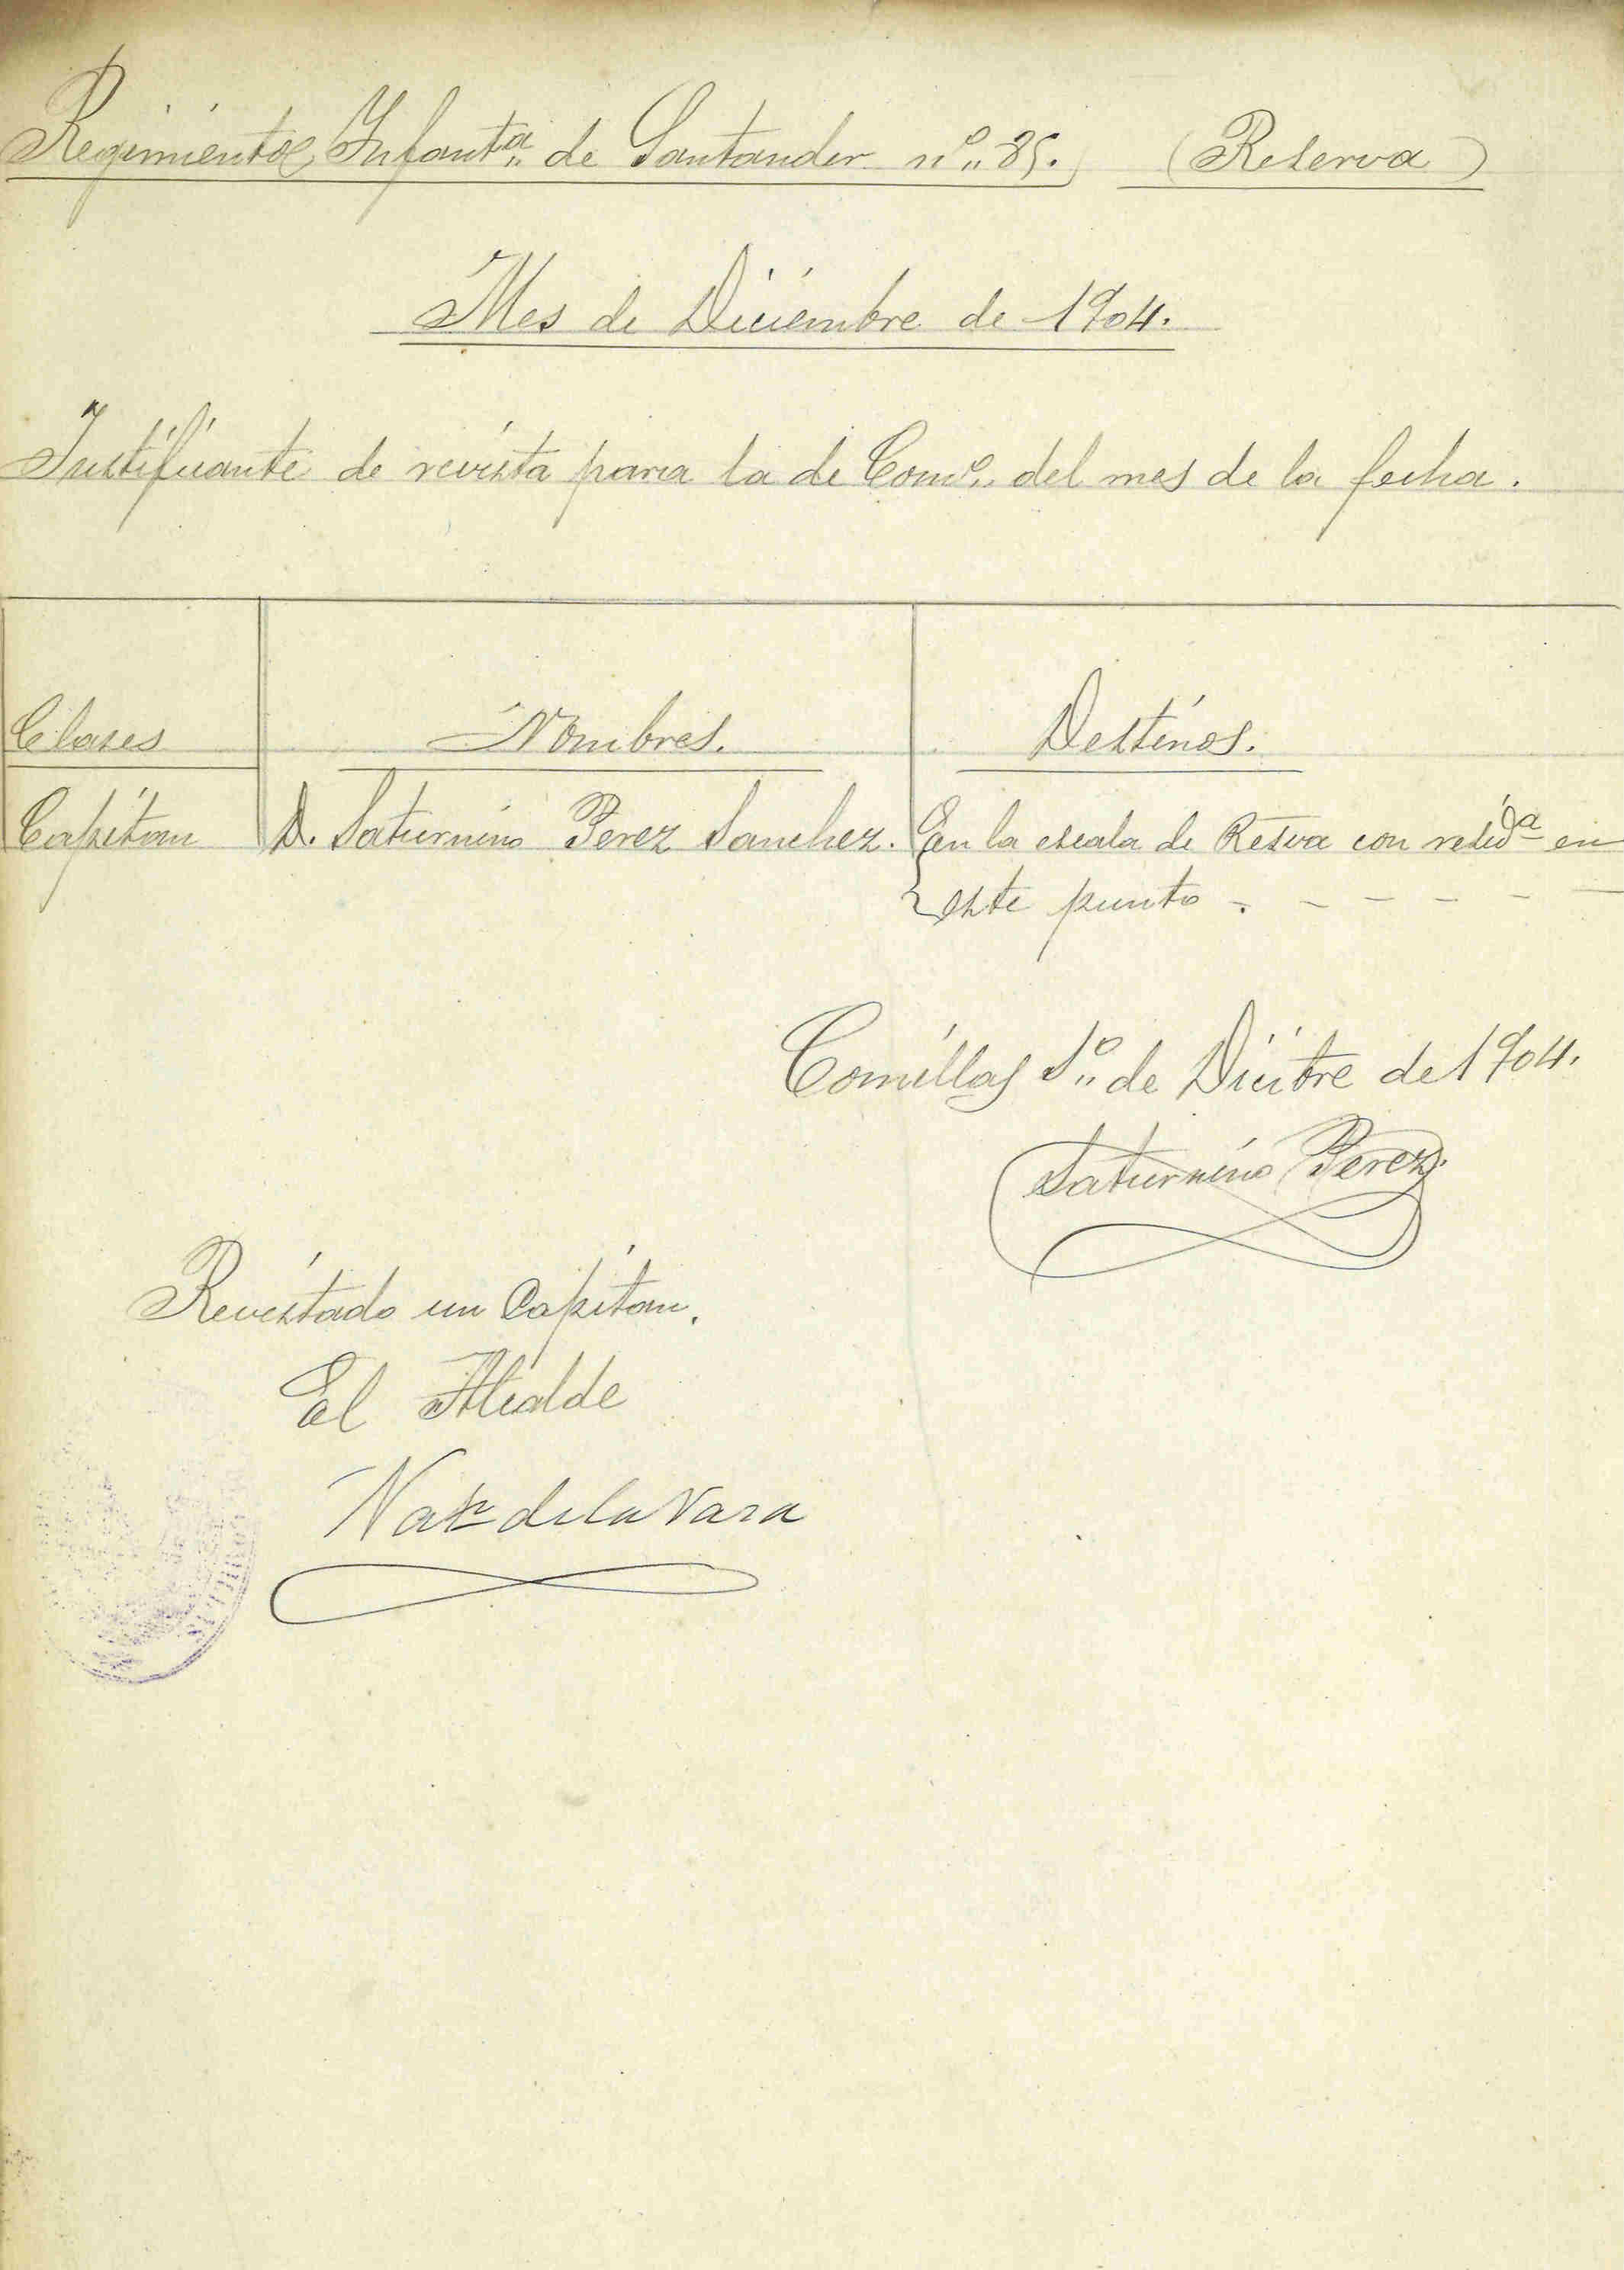 Regimiento Infantª de Santander nº 85. (Reserva)
Mes de Diciembre de 1904.
Justificante de revista para la de Comº del mes de la fecha.
Clases Nombres. Destinos.
Capitan D. Saturnino Perez Sanchez. En la escala de Resva con residª en
este punto.
Comillas 1º de Dicibre de 1904.
Saturnino Perez.
Revistado un Capitan.
El Alcalde
de la Vara